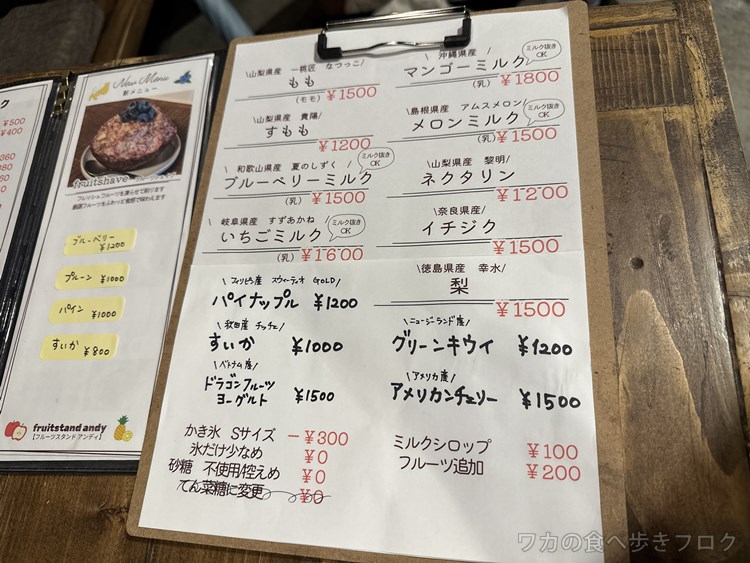 ¥500
¥400
New Menu
新メニュー
fruitshave
フレッシュフルーツを凍らせて削ります
ブルーベリー
¥1200
プルーン ¥1000
パイン ¥1000
すいか ¥800
fruitstand andy
【フルーツスタンド アンディ】
\山梨県産 一桃匠 なつっこ/
もも
(モモ) ¥1500
\山梨県産 貴陽/
すもも
¥1200
\和歌山県産 夏のしずく/
ブルーベリーミルク
ミルク抜き
OK
(乳) ¥1500
\岐阜県産 すずあかね/
いちごミルク
ミルク抜き
OK
(乳) ¥1600
\沖縄県産/
マンゴーミルク
ミルク抜き
OK
(乳) ¥1800
\島根県産 アムスメロン/
メロンミルク
ミルク抜き
OK
(乳) ¥1500
\山梨県産 黎明/
ネクタリン
¥1200
\奈良県産/
イチジク
¥1500
\徳島県産 幸水/
梨
¥1500
\フィリピン産 スウィーティオ GOLD/
パイナップル ¥1200
\秋田産 チッチェ/
すいか ¥1000
\ベトナム産/
ドラゴンフルーツ
ヨーグルト ¥1500
\ニュージーランド産/
グリーンキウイ ¥1200
\アメリカ産/
アメリカンチェリー ¥1500
かき氷 Sサイズ －¥300
氷だけ少なめ ¥0
砂糖 不使用/控えめ ¥0
てん菜糖に変更 ¥0
ミルクシロップ ¥100
フルーツ追加 ¥200
ワカの食べ歩きブログ